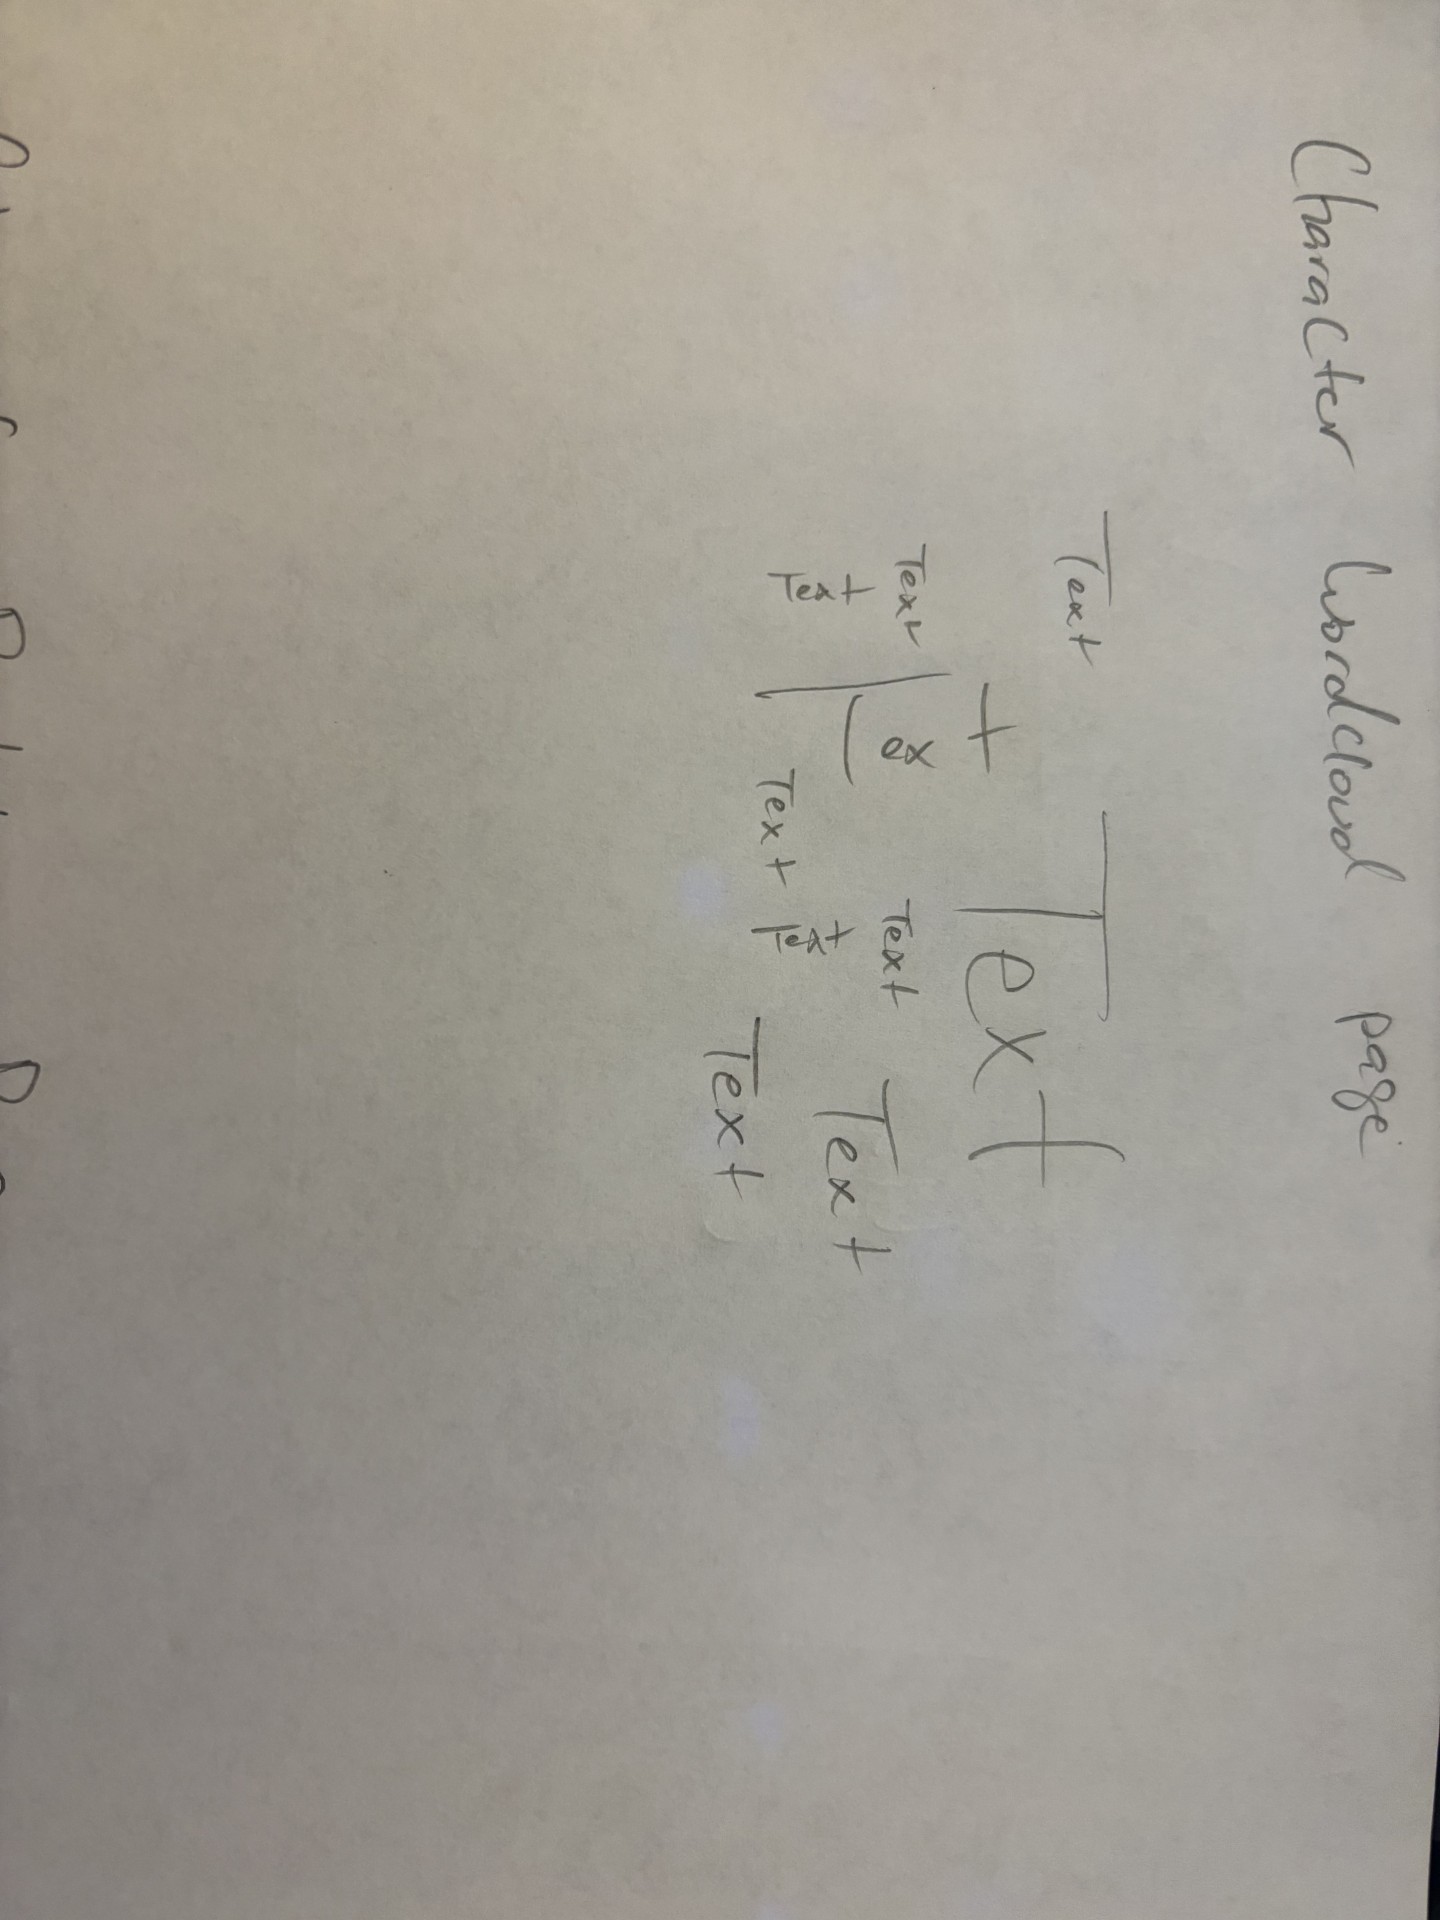 Character Wordcloud page
Text
Text
Text
Text
Text
Text
Text
Text
Text
Text